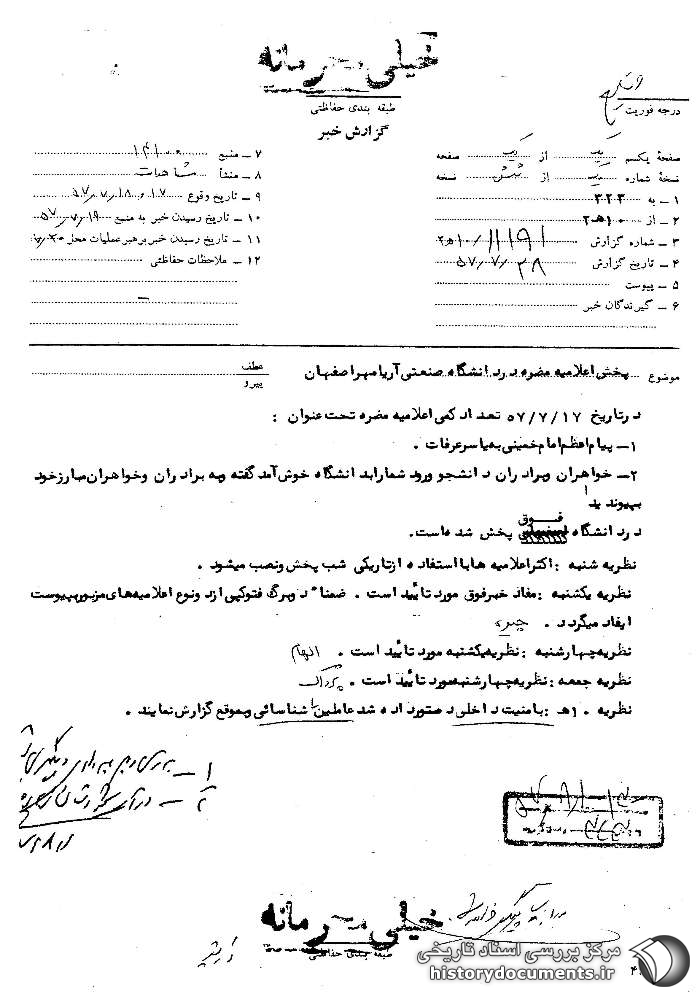 خیلی محرمانه
طبقه بندی حفاظتی
گزارش خبر
درجه فوریت
صفحهٔ یکم یک از یک صفحه
نسخهٔ شماره یک از شش نسخه
۱ – به ۳۲۳
۲ – از ۱۰هـ۲
۳ – شماره گزارش ۲هـ۱۰/۱۱۱۹۱
۴ – تاریخ گزارش ۵۷/۷/۲۸
۵ – پیوست
۶ – گیرندگان خبر
۷ – منبع
۸ – منشأ مشاهدات
۹ – تاریخ وقوع ۱۷ و ۵۷/۷/۱۸
۱۰ – تاریخ رسیدن خبر به منبع ۵۷/۷/۱۹
۱۱ – تاریخ رسیدن خبر برهبر عملیات محل
۱۲ – ملاحظات حفاظتی
موضوع پخش اعلامیه مضره در دانشگاه صنعتی آریامهر اصفهان
عطف
پیرو
در تاریخ ۵۷/۷/۱۷ تعداد کمی اعلامیه مضره تحت عنوان :
۱– پیام اعظم امام خمینی به یاسر عرفات .
۲– خواهران وبرادران دانشجو ورود شما را به دانشگاه خوش آمد گفته و به برادران وخواهران مبارز خود
بپیوندید
در دانشگاه فوق پخش شده است.
نظریه شنبه : اکثر اعلامیه ها با استفاده از تاریکی شب پخش ونصب میشود .
نظریه یکشنبه : مفاد خبر فوق مورد تأیید است . ضمناً دو برگ فتوکپی از دو نوع اعلامیه های مزبور بپیوست
ایفاد میگردد .
نظریه چهارشنبه : نظریه یکشنبه مورد تأیید است . الهام
نظریه جمعه : نظریه چهارشنبه مورد تأیید است .
نظریه ۱۰هـ : بامنیت داخلی دستور داده شد عاملین را شناسائی وبموقع گزارش نمایند .
خیلی محرمانه
طبقه بندی حفاظتی
مرکز بررسی اسناد تاریخی
historydocuments.ir